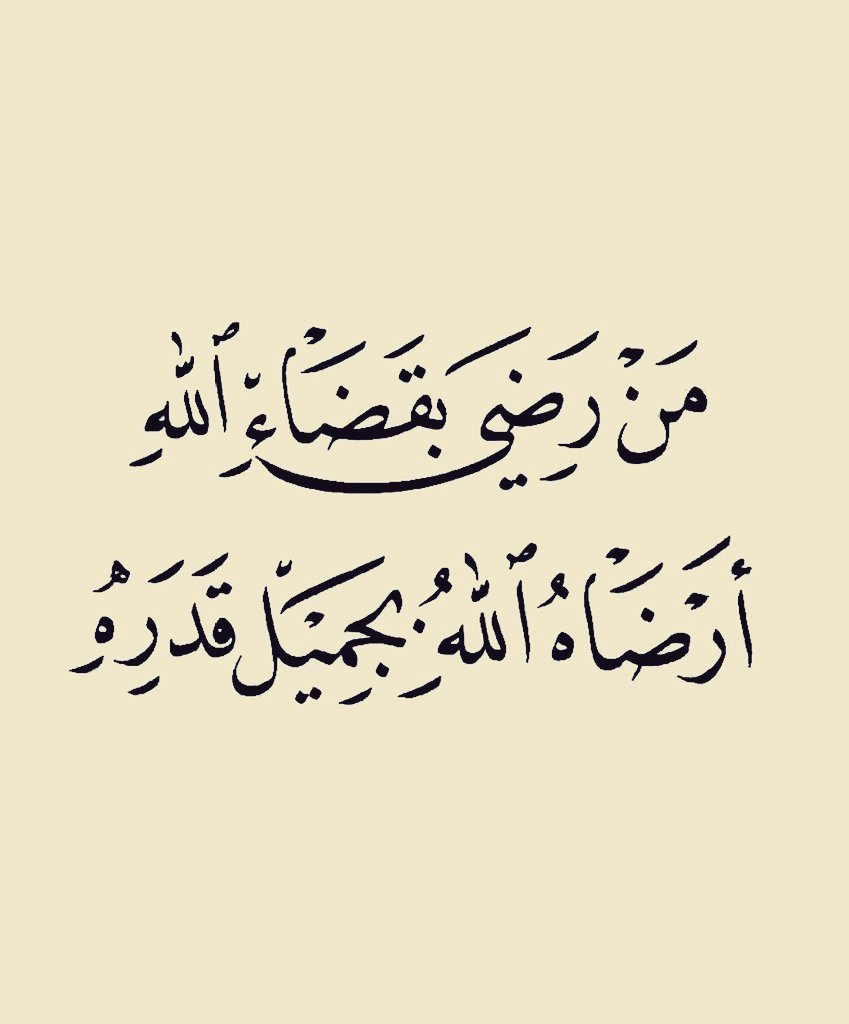 مَنْ رَضِيَ بِقَضَاءِ ٱللّٰهِ
أَرْضَاهُ ٱللّٰهُ بِجَمِيْلِ قَدَرِهِ